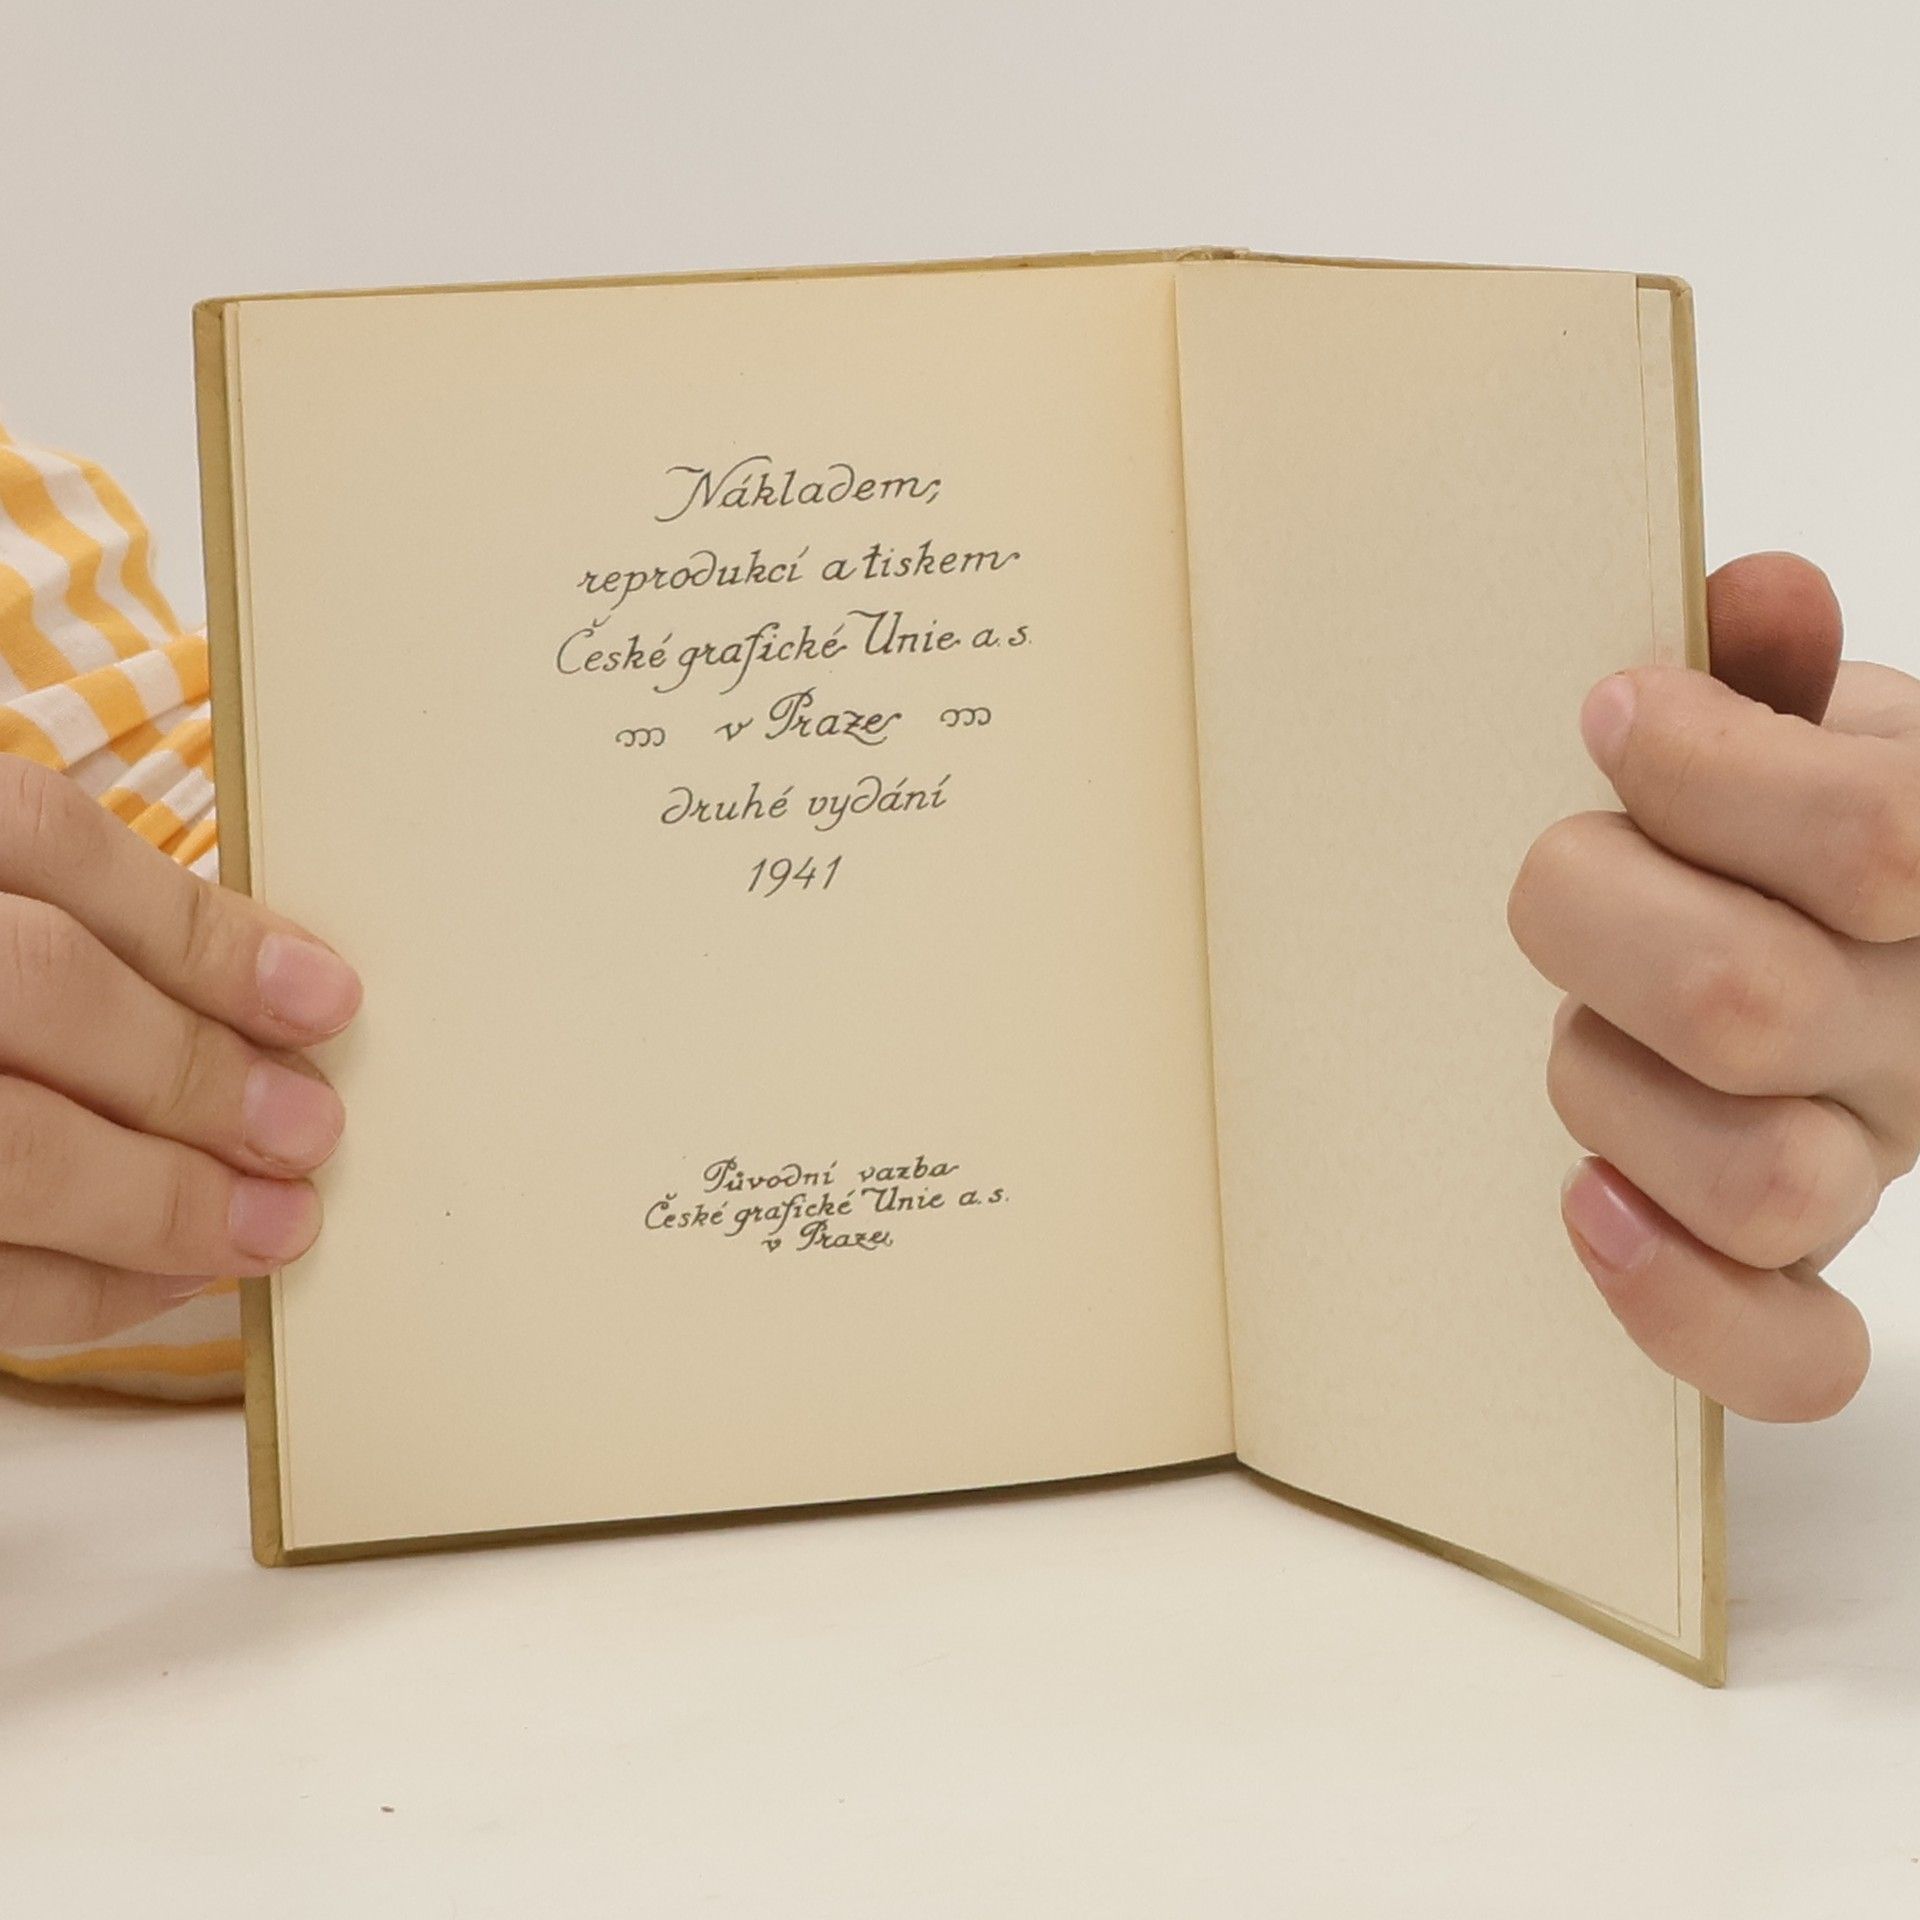 Nákladem,
reprodukcí a tiskem
České grafické Unie a. s.
v Praze
druhé vydání
1941
Původní vazba
České grafické Unie a. s.
v Praze